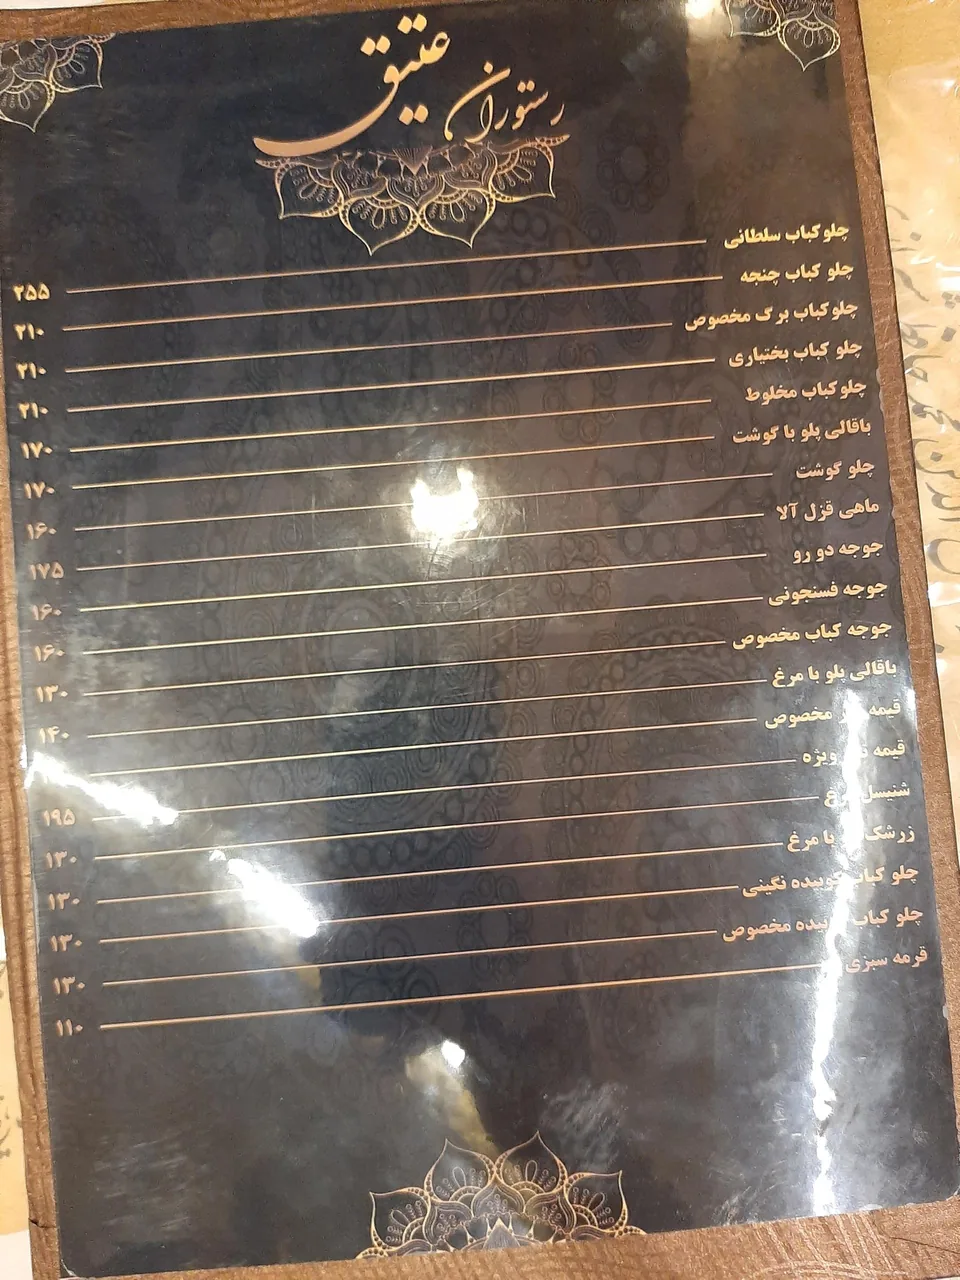 رستوران عتیق
چلوکباب سلطانی ۲۵۵
چلو کباب چنجه ۲۱۰
چلوکباب برگ مخصوص ۲۱۰
چلو کباب بختیاری ۲۱۰
چلوکباب مخلوط ۱۷۰
باقالی پلو با گوشت ۱۷۰
چلو گوشت ۱۶۰
ماهی قزل آلا ۱۷۵
جوجه دو رو ۱۶۰
جوجه فسنجونی ۱۶۰
جوجه کباب مخصوص ۱۳۰
باقالی پلو با مرغ ۱۴۰
قیمه مخصوص
قیمه ویژه ۱۹۵
شنیسل مرغ ۱۳۰
زرشک پلو با مرغ ۱۳۰
چلو کباب کوبیده نگینی ۱۳۰
چلو کباب کوبیده مخصوص ۱۳۰
قرمه سبزی ۱۱۰